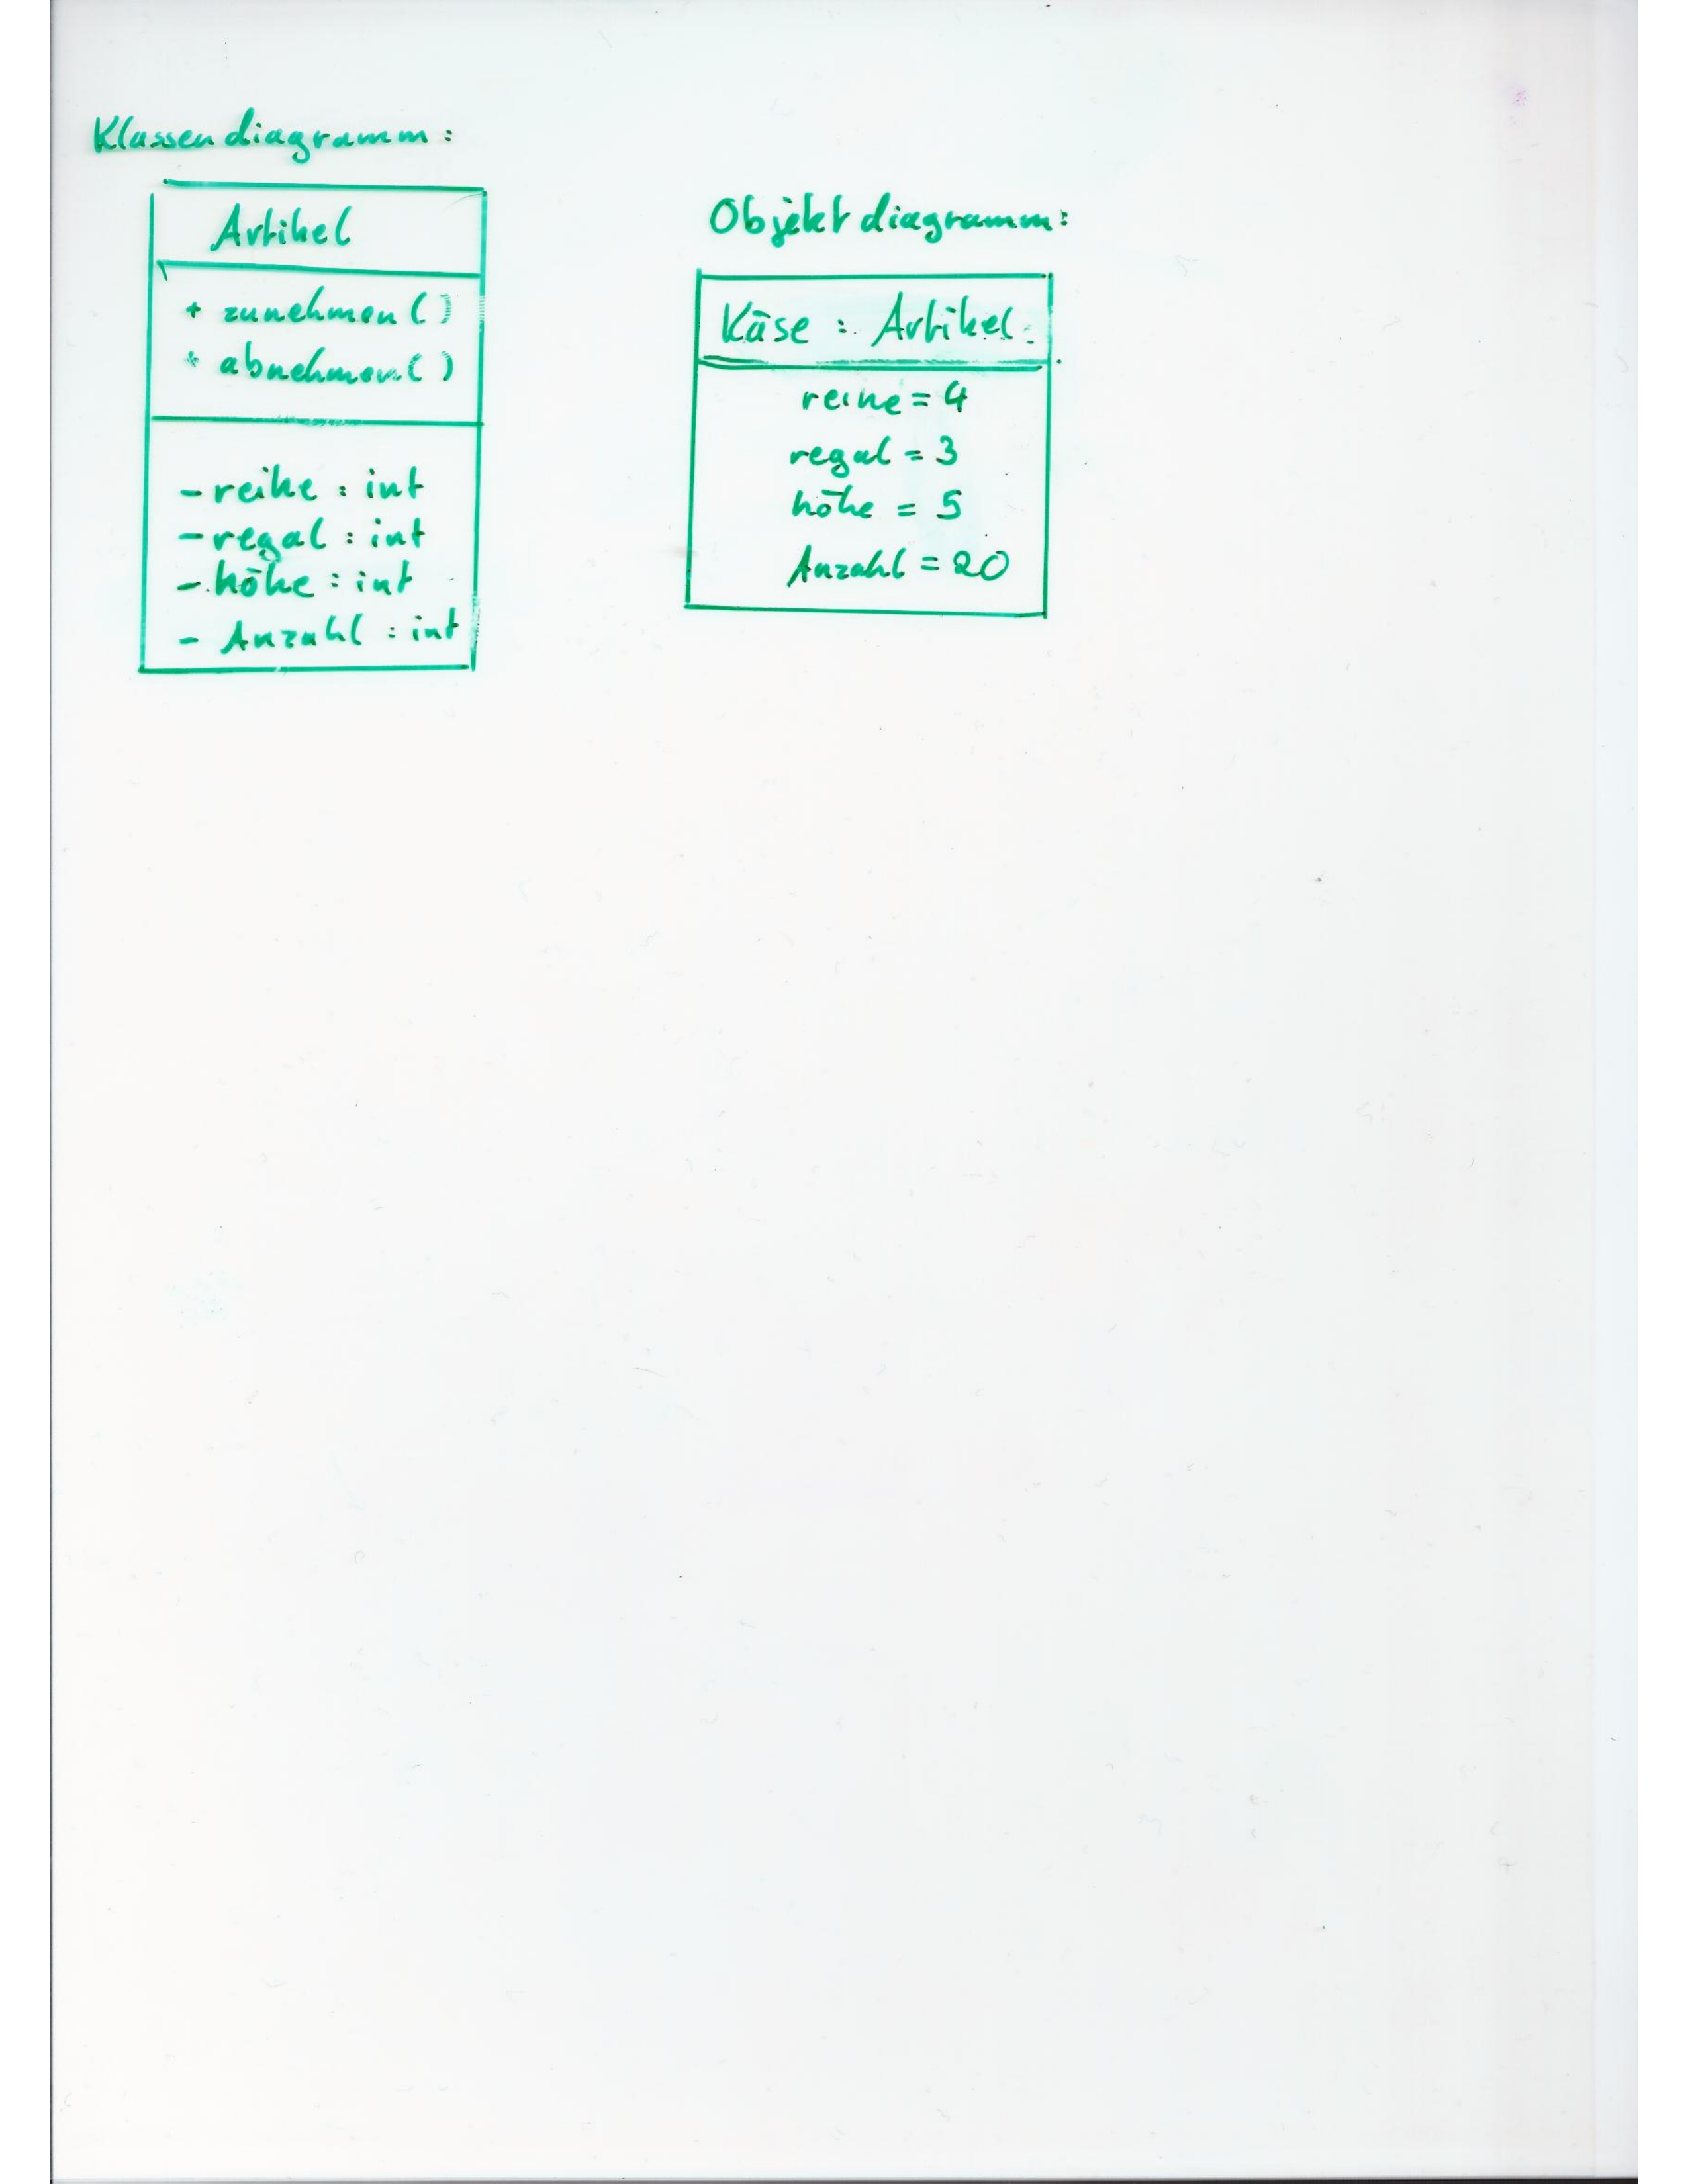 Klassendiagramm:
Artikel
+ zunehmen()
+ abnehmen()
- reihe : int
- regal : int
- höhe : int
- Anzahl : int
Objektdiagramm:
Käse : Artikel
reihe = 4
regal = 3
höhe = 5
Anzahl = 20